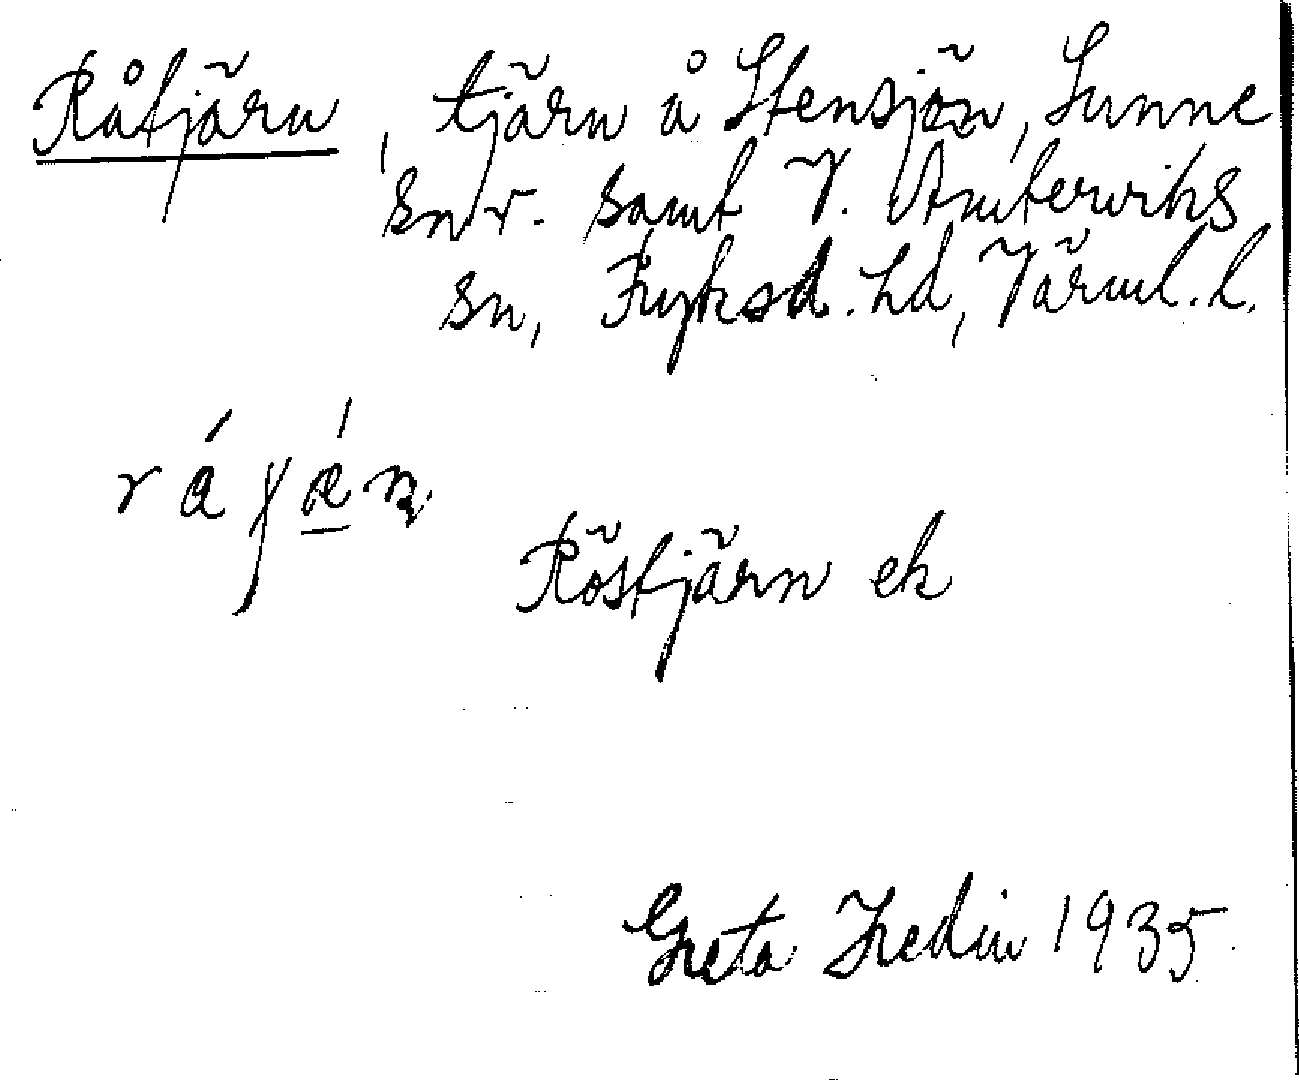 Råtjärn, tjärn å Stensjön, Sunne
snr. samt V. Ämterviks
sn, Fryksd. hd, Värml. l.
Röstjärn ek
Greta Hedin 1935